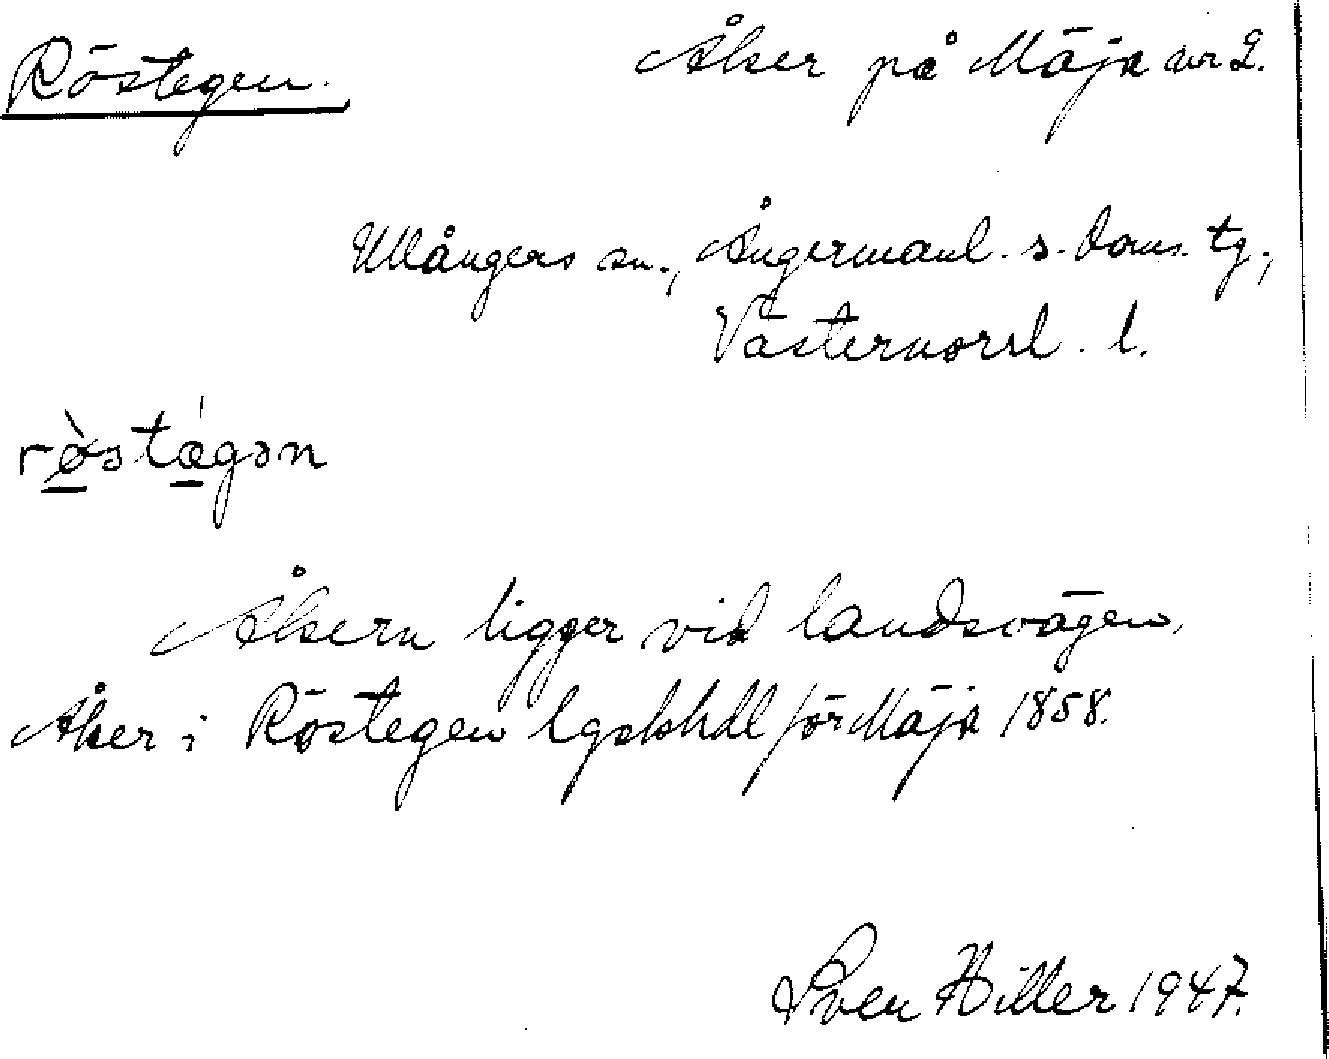 Röstegen. Åker på Mäja nr 2.
Ullångers sn., Ångermanl. s. doms. tg.,
Västernorrl. l.
rø̀stǽgən
Åkern ligger vid landsvägen.
Åker i Röstegen Lgskhdl för Mäja 1858.
Sven Hiller 1947.